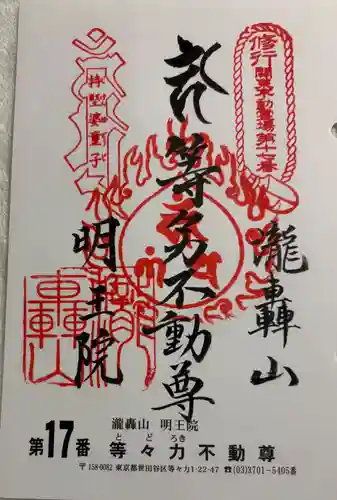 修行 関東不動霊場第十七番
奉拝
等々力不動尊
瀧轟山
明王院
瀧轟山 明王院
とどろき
第17番 等々力不動尊
〒158-0082 東京都世田谷区等々力1-22-47 ☎(03)3701-5405番